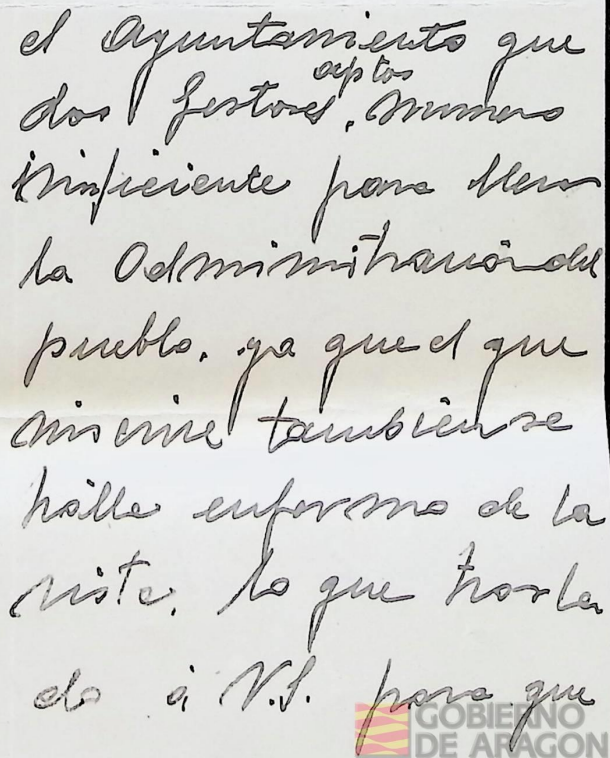 el Ayuntamiento que
aptos
dos Gestores, numero
insuficiente para llevar
la Administración del
pueblo. ya que el que
suscrive también se
halla enfermo de la
vista. lo que trasla
do á V.S. para que
GOBIERNO
DE ARAGON